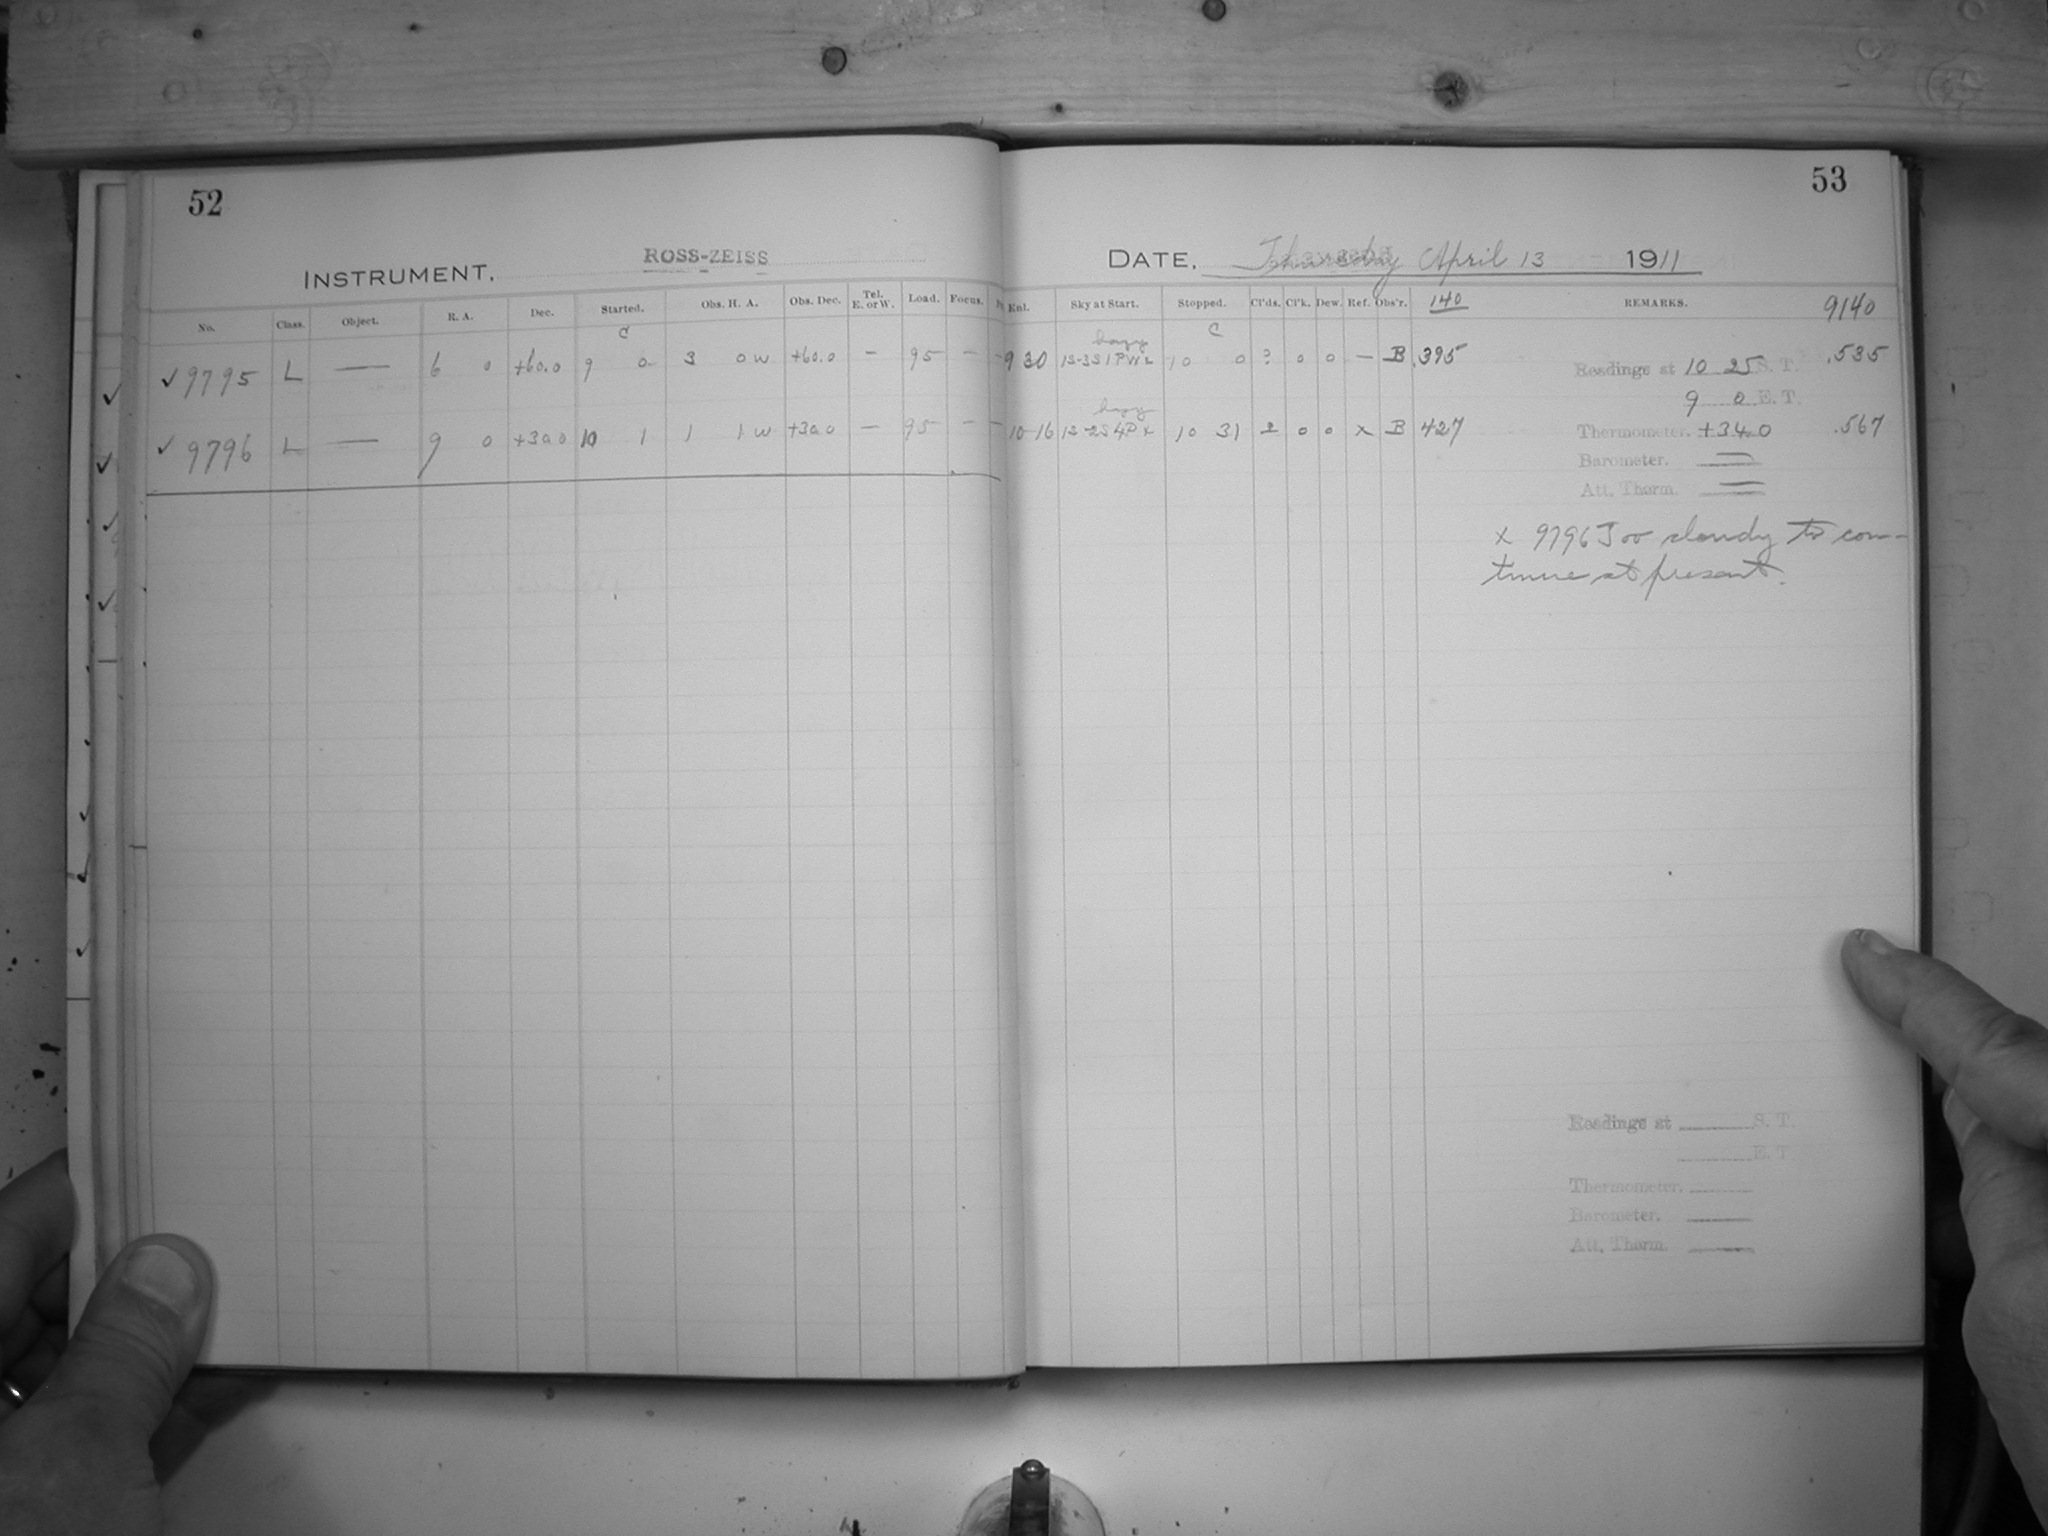 52
53
INSTRUMENT, ROSS-ZEISS
DATE, Thursday April 13 1911
No. Class. Object. R. A. Dec. Started. Obs. H. A. Obs. Dec. Tel. E. or W. Load. Focus.
Enl. Sky at Start. Stopped. Cl'ds. Cl'k. Dew. Ref. Obs'r. 140 REMARKS. 9140
C
hazy C
✓ 9795 L — 6 0 +60.0 9 0 3 0 W +60.0 — 95 — — 9 30 10 0 ? 0 0 — B .395 .535
Readings at 10 25 S. T.
9 0 E. T.
hazy
✓ 9796 L — 9 0 +30.0 10 1 1 1 W +30.0 — 95 — — 10-16 10 31 2 0 0 x B 427 .567
Thermometer. +34.0
Barometer. —
Att. Therm. —
x 9796 Too cloudy to con-
tinue at present.
Readings at S. T.
E. T.
Thermometer.
Barometer.
Att. Therm.